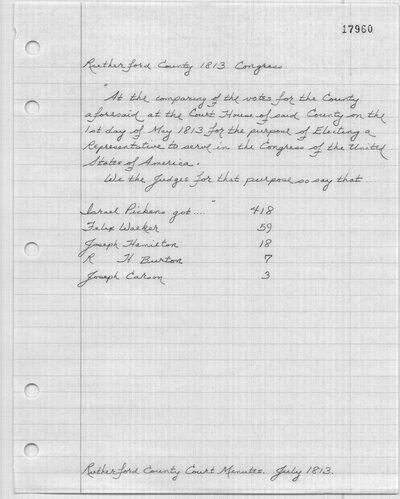 17960
Rutherford County 1813 Congress
"At the comparing of the votes for the County
aforesaid at the Court House of said County on the
1st day of May 1813 for the purpose of Electing a
Representative to serve in the Congress of the United
States of America.
We the Judges for that purpose so say that
Israel Pickens got...." 418
Felix Walker 59
Joseph Hamilton 18
R H Burton 7
Joseph Carson 3
Rutherford County Court Minutes. July 1813.